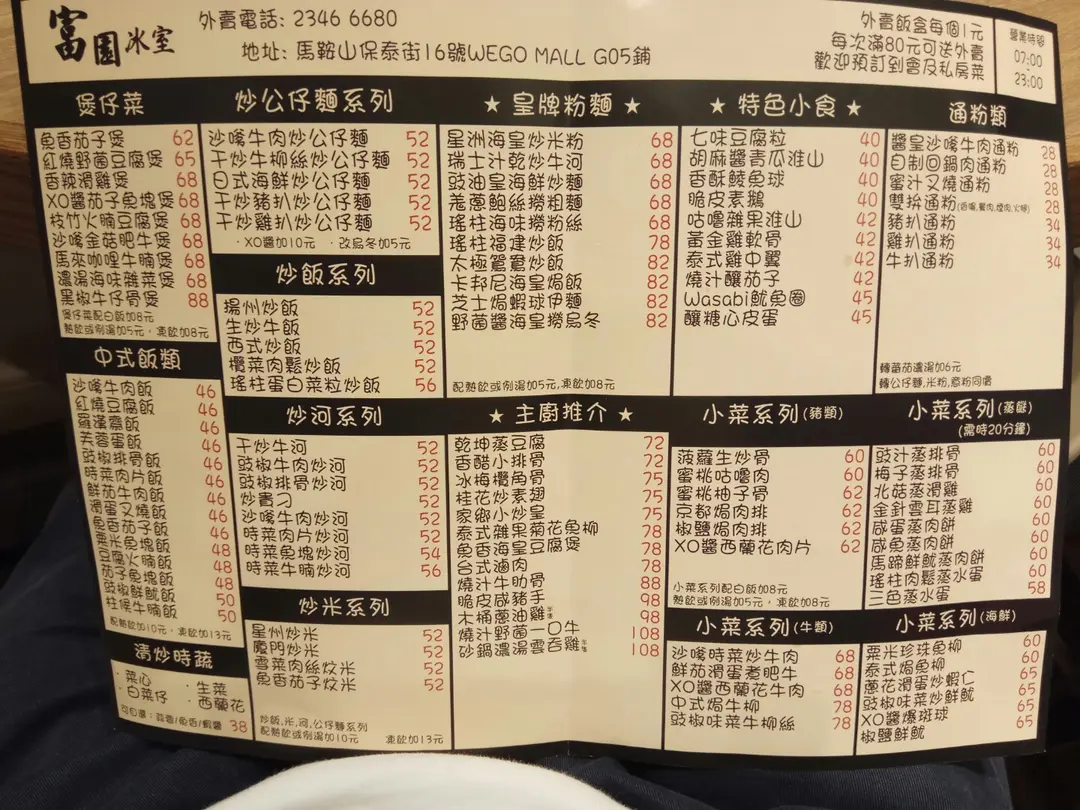 富園冰室
外賣電話: 2346 6680
地址: 馬鞍山保泰街16號WEGO MALL G05鋪
外賣飯盒每個1元
每次滿80元可送外賣
歡迎預訂到會及私房菜
營業時間
07:00
-
23:00
煲仔菜
魚香茄子煲 62
紅燒野菌豆腐煲 65
香辣滑雞煲 68
XO醬茄子魚塊煲 68
枝竹火腩豆腐煲 68
沙嗲金菇肥牛煲 68
馬來咖哩牛腩煲 68
濃湯海味雜菜煲 68
黑椒牛仔骨煲 88
煲仔菜配白飯加8元
熱飲或例湯加5元，凍飲加8元
中式飯類
沙嗲牛肉飯 46
紅燒豆腐飯 46
羅漢齋飯 46
芙蓉蛋飯 46
豉椒排骨飯 46
時菜肉片飯 46
鮮茄牛肉飯 46
滑蛋叉燒飯 46
魚香茄子飯 46
粟米魚塊飯 48
豆腐火腩飯 48
茄子魚塊飯 48
豉椒鮮魷飯 50
柱侯牛腩飯 50
配熱飲加10元，凍飲加13元
清炒時蔬
·菜心 ·生菜
·白菜仔 ·西蘭花
可自選：蒜蓉/魚香/蝦醬 38
炒公仔麵系列
沙嗲牛肉炒公仔麵 52
干炒牛柳絲炒公仔麵 52
日式海鮮炒公仔麵 52
干炒豬扒炒公仔麵 52
干炒雞扒炒公仔麵 52
·XO醬加10元 ·改烏冬加5元
炒飯系列
揚州炒飯 52
生炒牛飯 52
西式炒飯 52
欖菜肉鬆炒飯 52
瑤柱蛋白菜粒炒飯 56
炒河系列
干炒牛河 52
豉椒牛肉炒河 52
豉椒排骨炒河 52
炒貴刁 52
沙嗲牛肉炒河 52
時菜肉片炒河 52
時菜魚塊炒河 54
時菜牛腩炒河 56
炒米系列
星州炒米 52
廈門炒米 52
雪菜肉絲炆米 52
魚香茄子炆米 52
炒飯,米,河,公仔麵系列
配熱飲或例湯加10元 凍飲加13元
★ 皇牌粉麵 ★
星洲海皇炒米粉 68
瑞士汁乾炒牛河 68
豉油皇海鮮炒麵 68
羗蔥鮑絲撈粗麵 68
瑤柱海味撈粉絲 68
瑤柱福建炒飯 78
太極鴛鴦炒飯 82
卡邦尼海皇焗飯 82
芝士焗蝦球伊麵 82
野菌醬海皇撈烏冬 82
配熱飲或例湯加5元,凍飲加8元
★ 主廚推介 ★
乾坤蒸豆腐 72
香醋小排骨 72
冰梅欖角骨 75
桂花炒素翅 75
家鄉小炒皇 75
泰式雜果菊花魚柳 78
魚香海皇豆腐煲 78
台式鹵肉 78
燒汁牛肋骨 88
脆皮咸豬手 98
木桶蔥油雞半隻 98
燒汁野菌一口牛 108
砂鍋濃湯雲吞雞半隻 108
★ 特色小食 ★
七味豆腐粒 40
胡麻醬青瓜淮山 40
香酥鯪魚球 40
脆皮素鵝 40
咕嚕雜果淮山 42
黃金雞軟骨 42
泰式雞中翼 42
燒汁釀茄子 42
Wasabi魷魚圈 45
釀糖心皮蛋 45
小菜系列(豬類)
菠蘿生炒骨 60
蜜桃咕嚕肉 60
蜜桃柚子骨 62
京都焗肉排 62
椒鹽焗肉排 62
XO醬西蘭花肉片 62
小菜系列配白飯加8元
熱飲或例湯加5元，凍飲加8元
小菜系列(牛類)
沙嗲時菜炒牛肉 68
鮮茄滑蛋煮肥牛 68
XO醬西蘭花牛肉 68
中式焗牛柳 78
豉椒味菜牛柳絲 78
通粉類
醬皇沙嗲牛肉通粉 28
自制回鍋肉通粉 28
蜜汁叉燒通粉 28
雙拼通粉 28
豬扒通粉 34
雞扒通粉 34
牛扒通粉 34
轉蕃茄濃湯加6元
轉公仔麵,米粉,意粉同價
小菜系列(蒸餸)
(需時20分鐘)
豉汁蒸排骨 60
梅子蒸排骨 60
北菇蒸滑雞 60
金針雲耳蒸雞 60
咸蛋蒸肉餅 60
咸魚蒸肉餅 60
馬蹄鮮魷蒸肉餅 60
瑤柱肉鬆蒸水蛋 60
三色蒸水蛋 58
小菜系列(海鮮)
粟米珍珠魚柳 60
泰式焗魚柳 60
蔥花滑蛋炒蝦仁 65
豉椒味菜炒鮮魷 65
XO醬爆斑球 65
椒鹽鮮魷 65